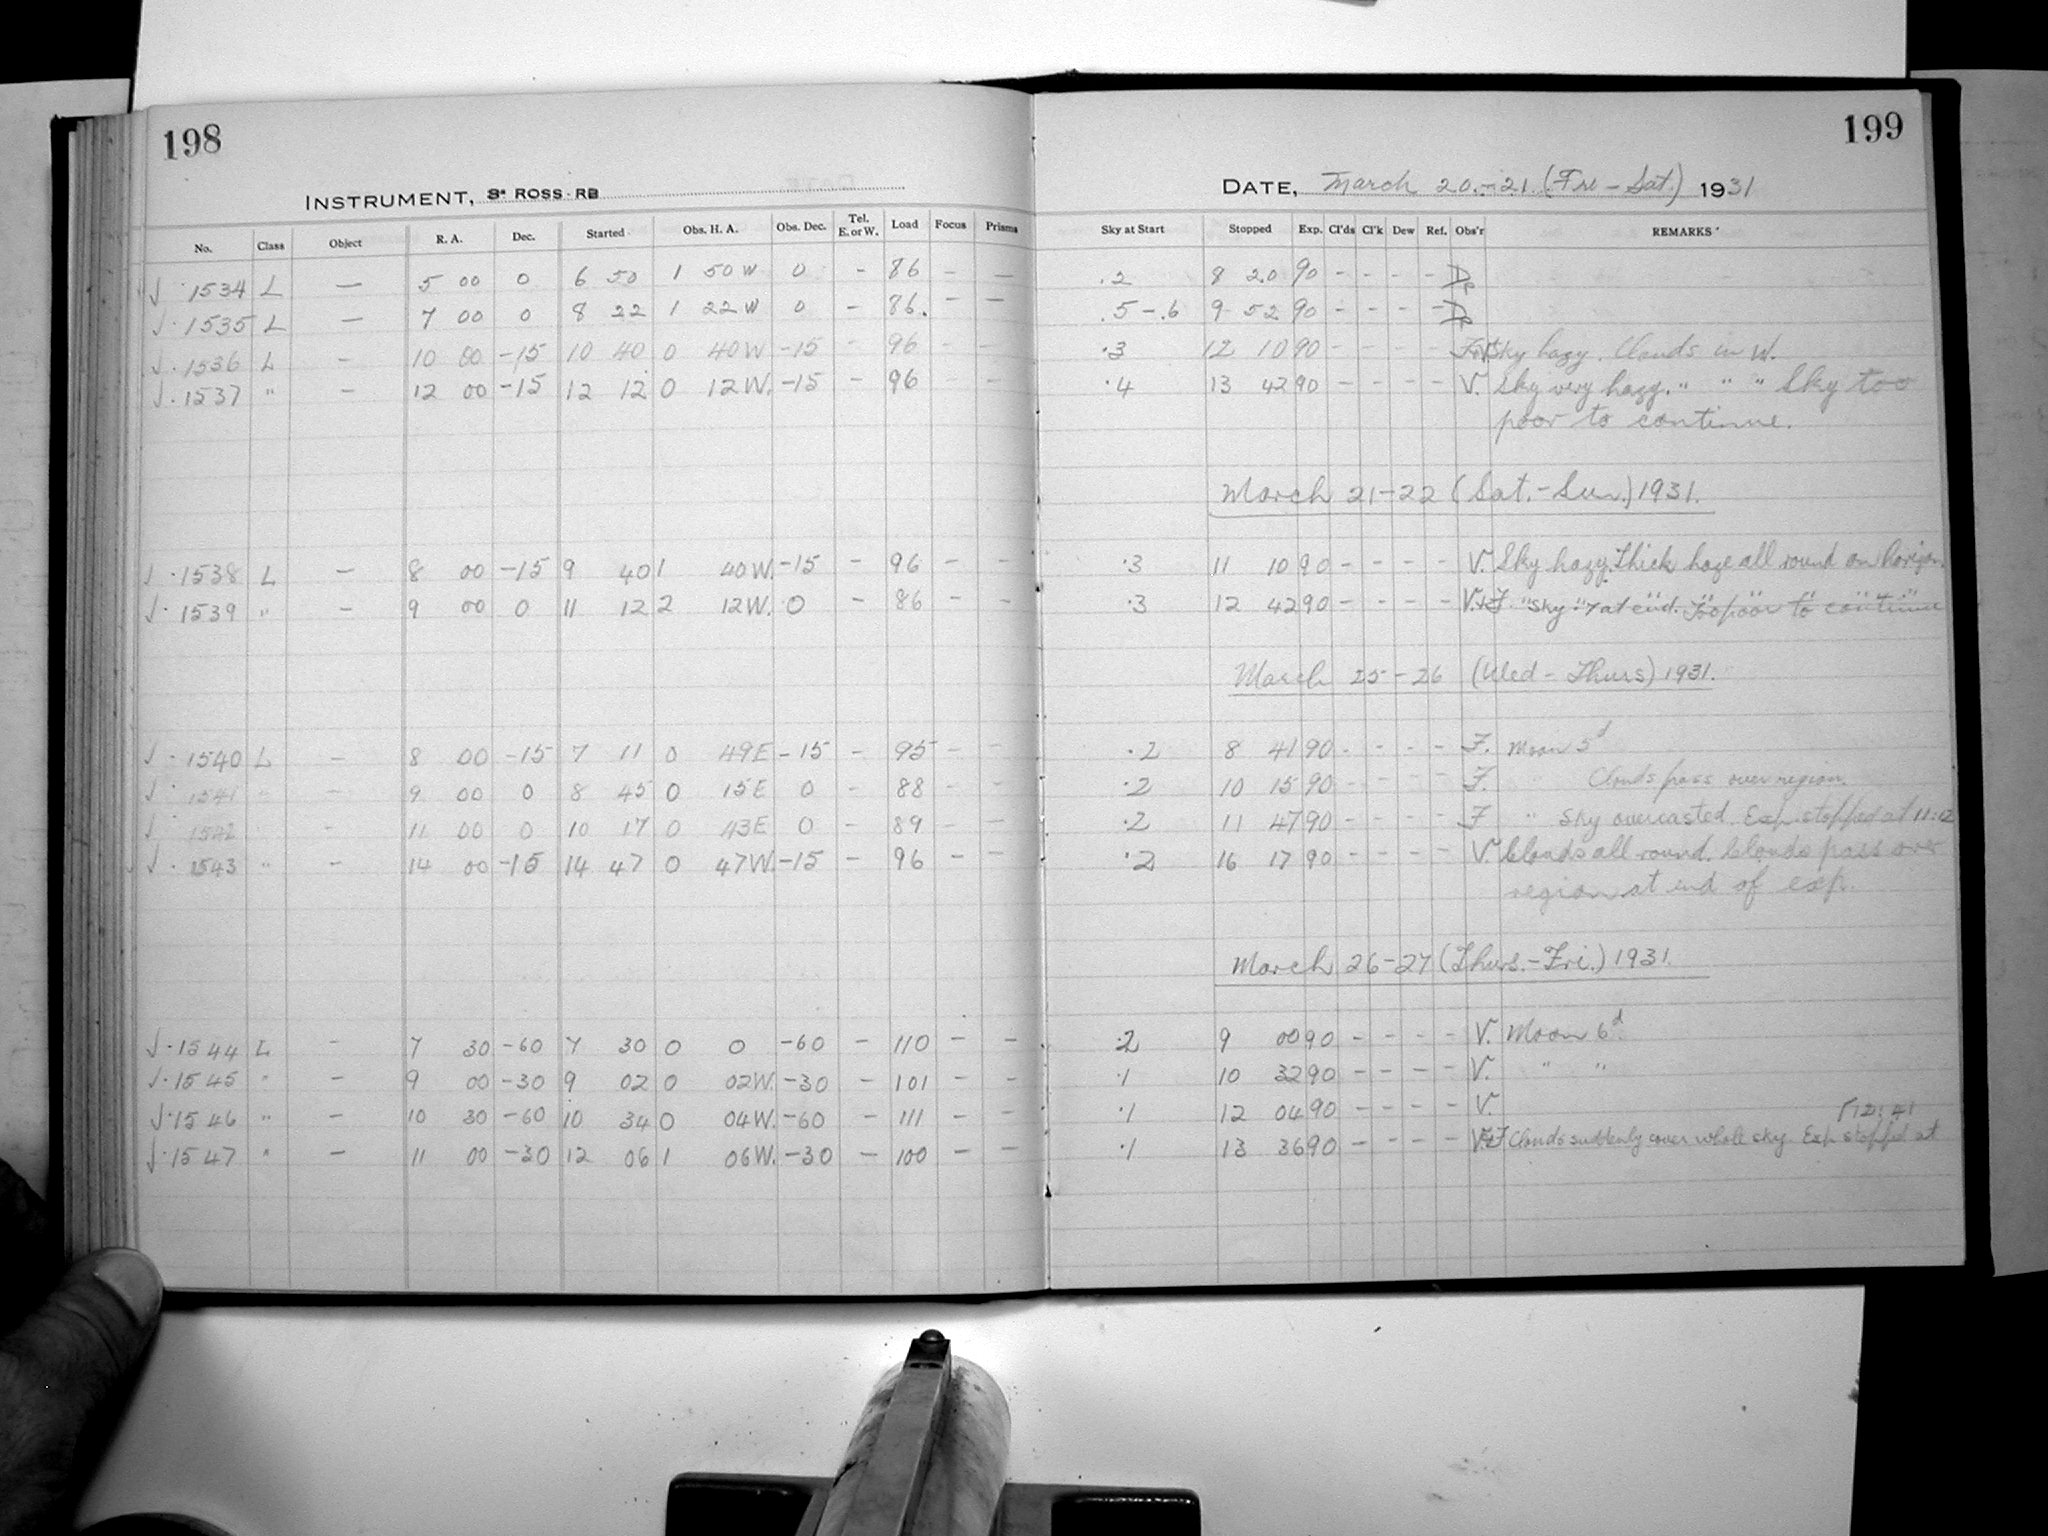 198
INSTRUMENT, 3" ROSS-RB
No. Class Object R. A. Dec. Started Obs. H. A. Obs. Dec. Tel. E. or W. Load Focus Prisms
√ · 1534 L — 5 00 0 6 50 1 50 W 0 - 86 - —
√ · 1535 L — 7 00 0 8 22 1 22 W 0 - 86. - —
√ · 1536 L - 10 00 -15 10 40 0 40 W -15 - 96 - -
√ · 1537 " - 12 00 -15 12 12 0 12 W. -15 - 96 - -
√ · 1538 L - 8 00 -15 9 40 1 40 W. -15 - 96 - -
√ · 1539 " - 9 00 0 11 12 2 12 W. 0 - 86 - -
√ · 1540 L - 8 00 -15 7 11 0 49 E -15 - 95 - -
√ · 1541 " - 9 00 0 8 45 0 15 E 0 - 88 - -
√ 1542 - 11 00 0 10 17 0 43 E 0 - 89 - -
√ · 1543 " - 14 00 -15 14 47 0 47 W. -15 - 96 - -
√ · 1544 L - 7 30 -60 7 30 0 0 -60 - 110 - -
√ · 1545 " - 9 00 -30 9 02 0 02 W. -30 - 101 - -
√ · 1546 " - 10 30 -60 10 34 0 04 W. -60 - 111 - -
√ · 1547 " - 11 00 -30 12 06 1 06 W. -30 - 100 - -
199
DATE, March 20.-21 (Fri - Sat.) 1931
Sky at Start Stopped Exp. Cl'ds Cl'k Dew Ref. Obs'r REMARKS
.2 8 20 90 - - - -
.5 - .6 9 52 90 - - - -
·3 12 10 90 - - - - Sky hazy. Clouds in W.
·4 13 42 90 - - - - V. Sky very hazy. " " " Sky too
poor to continue.
March 21-22 (Sat.-Sun.) 1931.
·3 11 10 90 - - - - V. Sky hazy. Thick haze all round on horizon.
·3 12 42 90 - - - - V.+F. " Sky " at end. Too poor to continue
March 25-26 (Wed - Thurs) 1931.
·2 8 41 90 - - - - F. Moon 5d
·2 10 15 90 - - - - F. " Clouds pass over region.
·2 11 47 90 - - - - F " Sky overcasted. Exp. stopped at 11:12
·2 16 17 90 - - - - V Clouds all round. Clouds pass over
region at end of exp.
March 26-27 (Thurs.-Fri.) 1931.
·2 9 00 90 - - - - V. Moon 6d.
·1 10 32 90 - - - - V. " "
·1 12 04 90 - - - - V.
·1 13 36 90 - - - - V+F Clouds suddenly cover whole sky. Exp stopped at 12:41